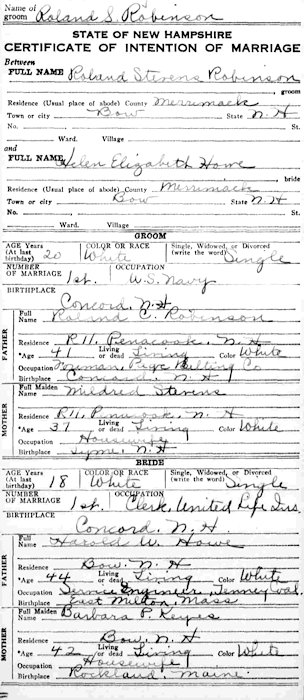 Name of groom Roland S. Robinson
STATE OF NEW HAMPSHIRE
CERTIFICATE OF INTENTION OF MARRIAGE
Between
FULL NAME Roland Stevens Robinson
groom
Residence (Usual place of abode) County Merrimack
Town or city Bow State N.H
No. St.
Ward. Village
and
FULL NAME Helen Elizabeth Howe
bride
Residence (Usual place of abode) County Merrimack
Town or city Bow State N.H
No. St.
Ward. Village
GROOM
AGE Years (At last birthday) 20 COLOR OR RACE White Single, Widowed, or Divorced (write the word) Single
NUMBER OF MARRIAGE 1st. OCCUPATION U.S. Navy
BIRTHPLACE
Concord, N.H
FATHER
Full Name Roland C. Robinson
R11, Penacook, N.H
*Age 41 Living or dead Living Color White
Occupation Foreman, Page Belting Co
Birthplace Concord, N.H
MOTHER
Full Maiden Name Mildred Stevens
R11, Penacook, N.H
*Age 37 Living or dead Living Color White
Occupation Housewife
Birthplace Lyme, N.H
BRIDE
AGE Years (At last birthday) 18 COLOR OR RACE White Single, Widowed, or Divorced (write the word) Single
NUMBER OF MARRIAGE 1st. OCCUPATION Clerk, United Life Ins.
BIRTHPLACE
Concord, N.H.
FATHER
Full Name Harold W. Howe
Bow, N.H
*Age 44 Living or dead Living Color White
Occupation Service Engineer, Tenney
Birthplace East Milton, Mass
MOTHER
Full Maiden Name Barbara P. Keyes
Bow, N.H
*Age 42 Living or dead Living Color White
Occupation Housewife
Birthplace Rockland, Maine